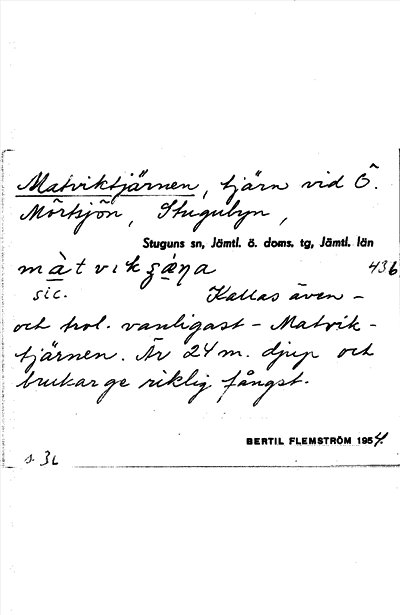 Matviktjärnen, tjärn vid Ö.
Mörtsjön, Stugubyn,
Stuguns sn, Jämtl. ö. doms. tg, Jämtl. län
màtvik 436
sic. Kallas även -
och trol. vanligast - Matvik-
tjärnen. Är 24 m. djup och
brukar ge riklig fångst.
BERTIL FLEMSTRÖM 1954.